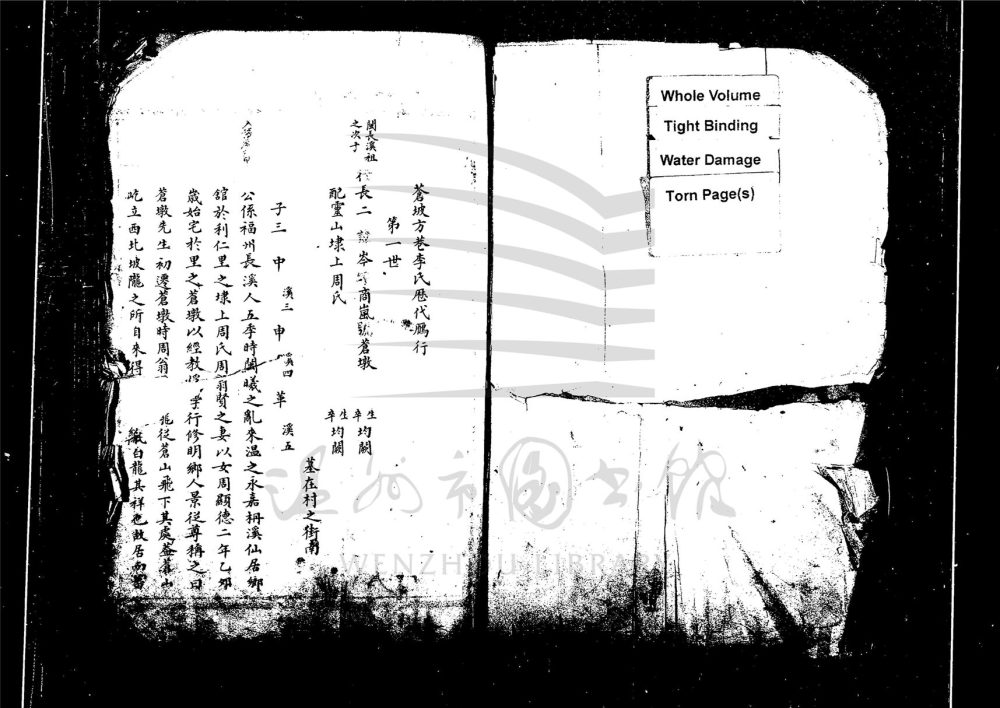 蒼坡方巷李氏歷代鴈行
第一世
閩長溪祖
之次子
行長二 諱岑 字商嵐號蒼墩
生
卒均闕
配靈山埭上周氏
生
卒均闕
墓在村之街南
子三 申 溪三 申 溪四 革 溪五
公係福州長溪人五季時閩曦之亂來溫之永嘉枬溪仙居鄉
舘於利仁里之埭上周氏周翁賢之妻以女周顯德二年乙卯
歲始宅於里之蒼墩以經教 學行修明鄉人景從尊稱之曰
蒼墩先生初遷蒼墩時周翁 從蒼山飛下其處蓋蒼山
屹立西北坡隴之所自來得 白龍其祥也故居
Whole Volume
Tight Binding
Water Damage
Torn Page(s)
温州市图书馆
WENZHOU LIBRARY